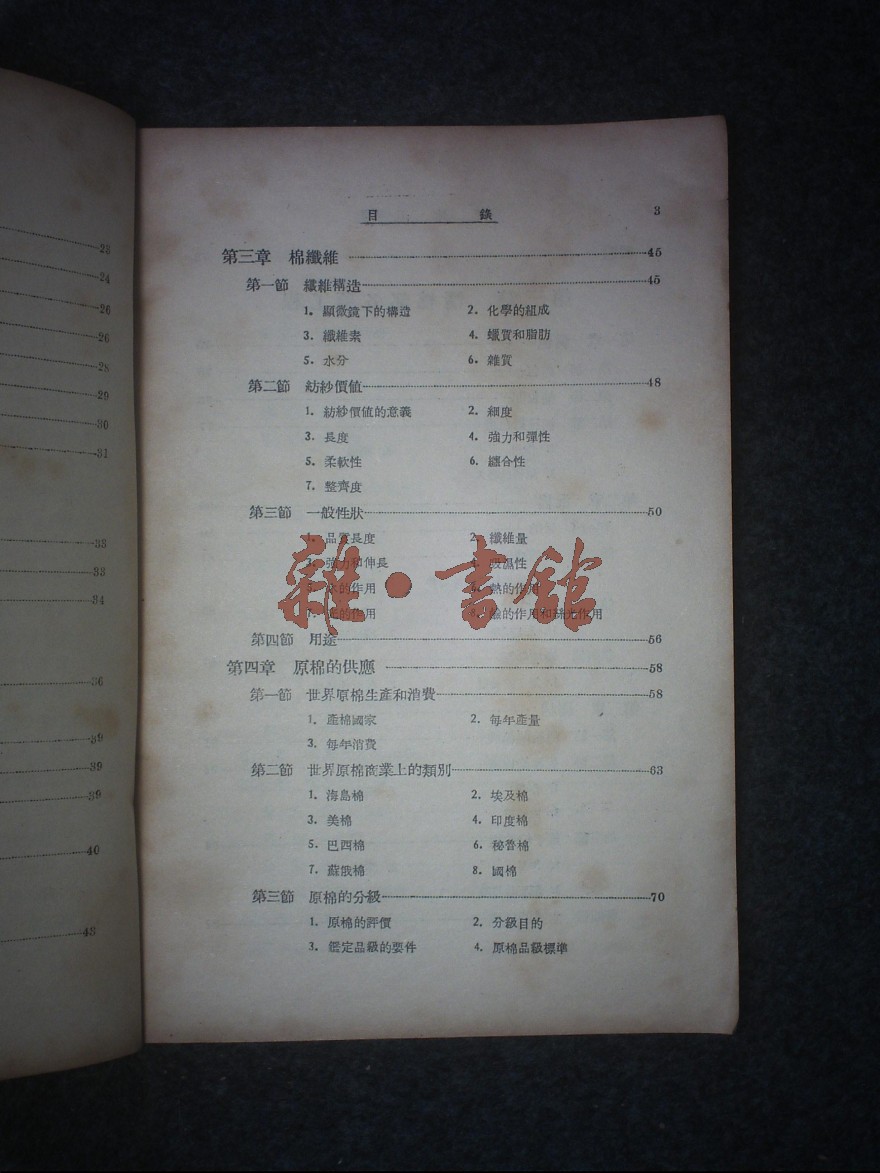 23
24
26
26
28
29
30
31
33
33
34
36
39
39
39
40
43
目 錄 3
第三章 棉纖維 45
第一節 纖維構造 45
1. 顯微鏡下的構造 2. 化學的組成
3. 纖維素 4. 蠟質和脂肪
5. 水分 6. 雜質
第二節 紡紗價値 48
1. 紡紗價値的意義 2. 細度
3. 長度 4. 強力和彈性
5. 柔軟性 6. 纏合性
7. 整齊度
第三節 一般性狀 50
1. 品質長度 2. 纖維量
3. 強力和伸長 4. 吸濕性
的作用 6. 熱的作用
7. 的作用 8. 鹼的作用和 作用
雜·書館
第四節 用途 56
第四章 原棉的供應 58
第一節 世界原棉生產和消費 58
1. 產棉國家 2. 每年產量
3. 每年消費
第二節 世界原棉商業上的類別 63
1. 海島棉 2. 埃及棉
3. 美棉 4. 印度棉
5. 巴西棉 6. 秘魯棉
7. 蘇俄棉 8. 國棉
第三節 原棉的分級 70
1. 原棉的評價 2. 分級目的
3. 鑑定品級的要件 4. 原棉品級標準